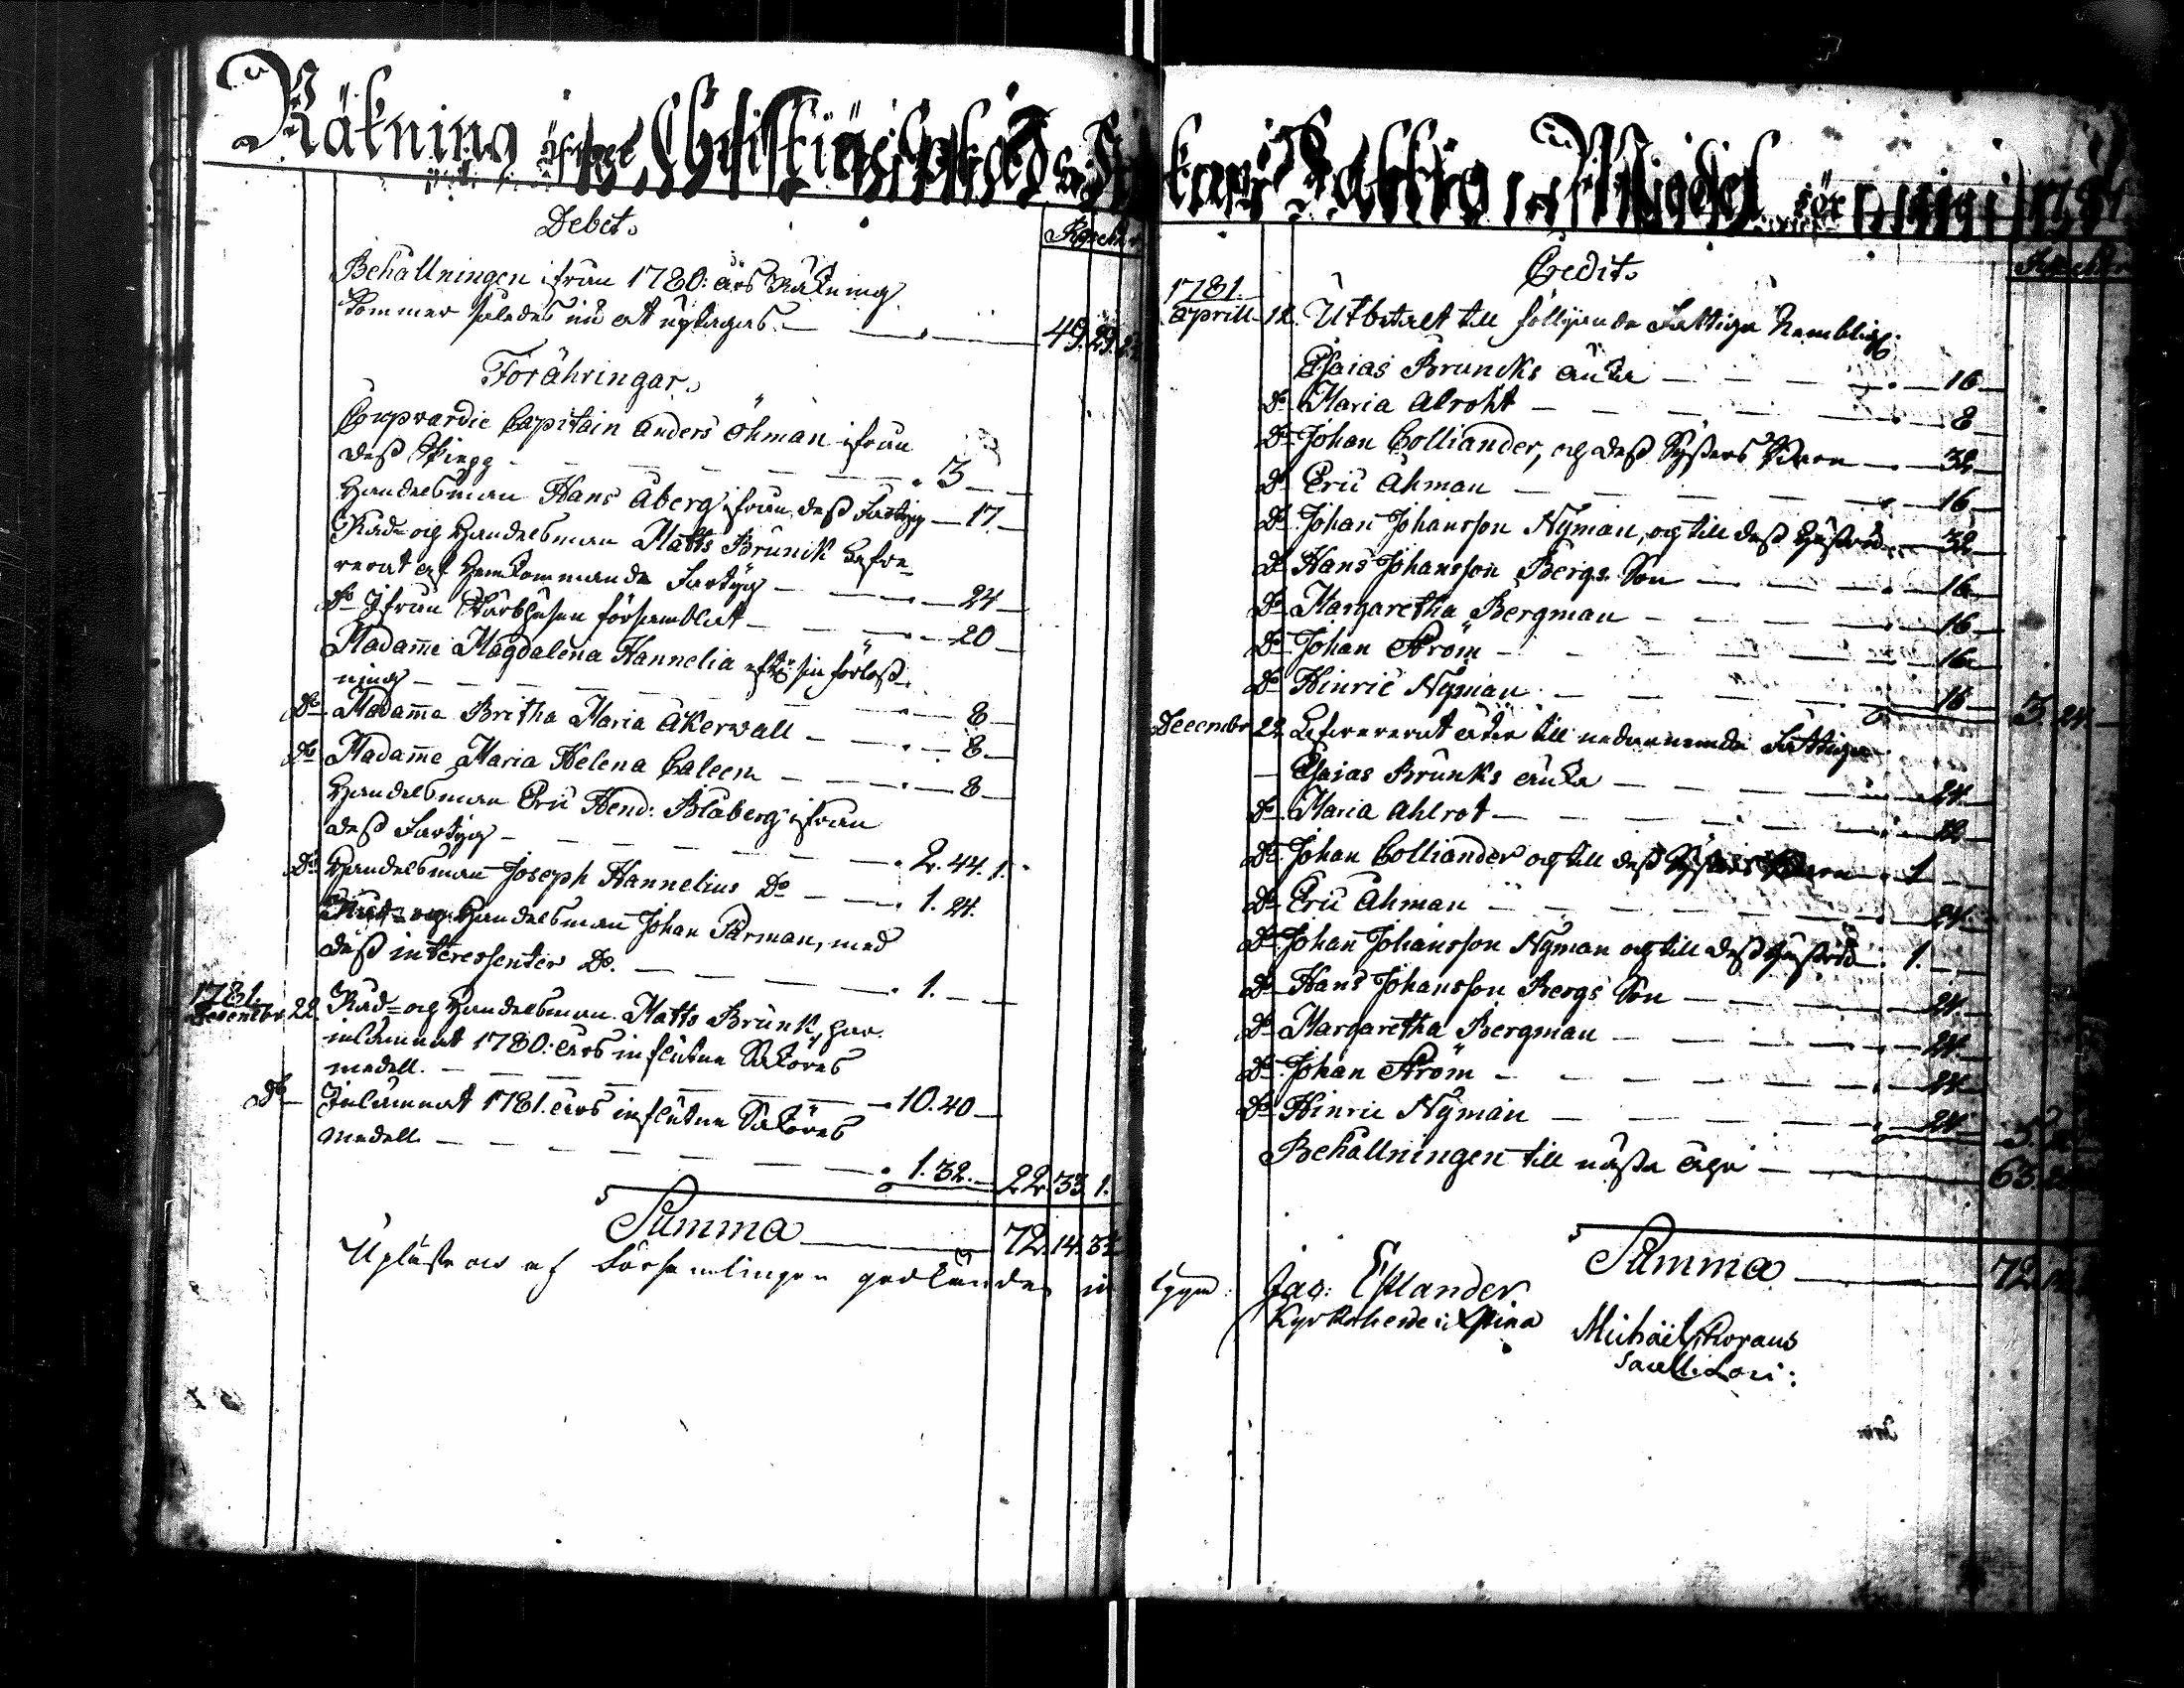 Räkning öfver Christinæ Stads
Debet.
Behållningen ifrån 1780: års Räkning
kommer således nu at uptagas. — 49. 29.
Förähringar.
Coopvardie Capitain Anders Öhman ifrån
dess Skiepp — 3 —
Handelsman Hans Åberg ifrån dess Fartyg — 17 —
Råd- og Handelsman Matts Brunck lefve-
rerat af hemkommande Fartyg — 24 —
Do Ifrån Skärbåsen församblat — 20 —
Madame Magdalena Hannelia efter sin förloss-
ning — 8 —
Do Madame Britha Maria Åkerwall — 8 —
Do Madame Maria Helena Caleen — 8 —
Handelsman Eric Hend: Blåberg ifrån
dess Fartyg — 2. 44. 1.
Do Handelsman Joseph Hannelius Do — 1. 24.
Råd- og Handelsman Johan Parman, med
dess interessenter Do. — 1. —
1781.
Decembr 22. Råd- og Handelsman Matts Brunk, har
inlämnat 1780: års influtne Saköres
medell. — 10. 40 —
Do Inlämnat 1781. års influtne Saköres
medell — 1. 32. — 22. 33. 1.
Summa — 72. 14.
Upläst ock af Församlingen godkändes in
Fattig Medel för 1781
Credit.
1781.
Aprill 12. Utbetalt till följande Fattiga Nembligen
Esaias Bruncks Änka — 16 —
Do Maria Alroht — 8 —
Do Johan Colliander, og dess Systers — 32 —
Do Eric Åhman — 16 —
Do Johan Johansson Nyman, og till dess Hustru — 32 —
Do Hans Johansson Bergs Son — 16 —
Do Margaretha Bergman — 16 —
Do Johan Ström — 16 —
Do Hinric Nyman — 16 — 3. 24. —
Decembr 22 Lefvererat åter till nedannemde Fattiga
Esaias Brunks Änka — 24. —
Do Maria Ahlrot — 12 —
Do Johan Colliander og till dess Systers — 1 —
Do Eric Åhman — 24 —
Do Johan Johansson Nyman og till dess Hustru — 1. —
Do Hans Johansson Bergs Son — 24. —
Do Margaretha Bergman — 24. —
Do Johan Ström — 24 —
Do Hinric Nyman — 24 — 5.
Behållningen till nästa åhr — 63.
Summa — 72.
Jac: Estlander
Kyrkoherde i
Michäel Choræus
Sacell: Loci: